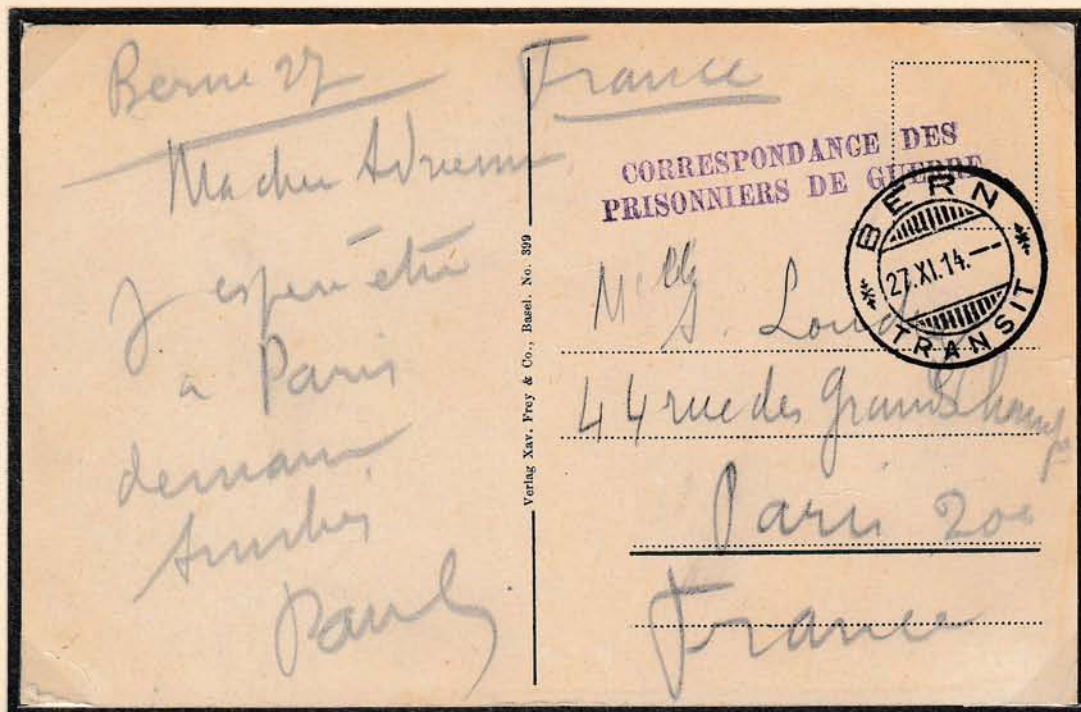 Berne 27
Ma chère Adrienne
J espère être
à Paris
demain
Amitiés
Paul
Verlag Xav. Frey & Co., Basel. No. 399
France
CORRESPONDANCE DES
PRISONNIERS DE GUERRE
BERN
27.XI.14.—
TRANSIT
Mlle
44 rue des Grands Champs
Paris 20e
France